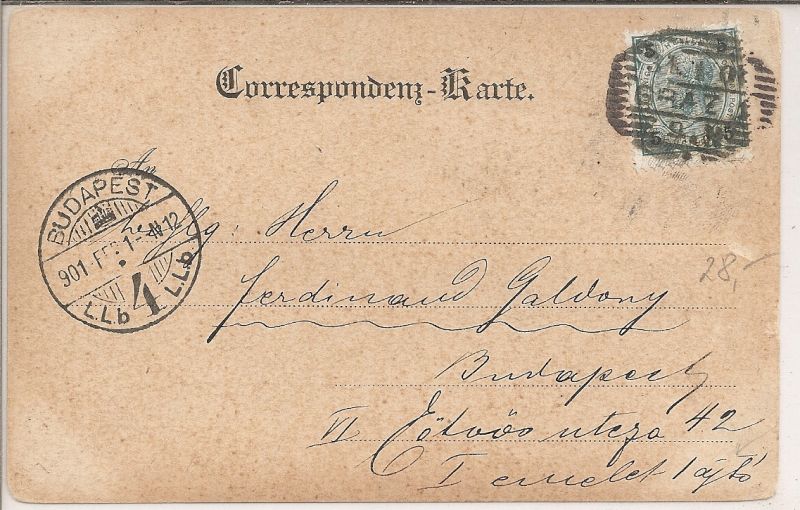 Correspondenz-Karte.
5 5
GRAZ
5 5
An
BUDAPEST
901 FEB 1 - N 12
4
L.L.b L.L.b
Herrn
28,-
Ferdinand Galdony
Budapest
VI Eötvös utcza 42
I emelet 1 ajtó